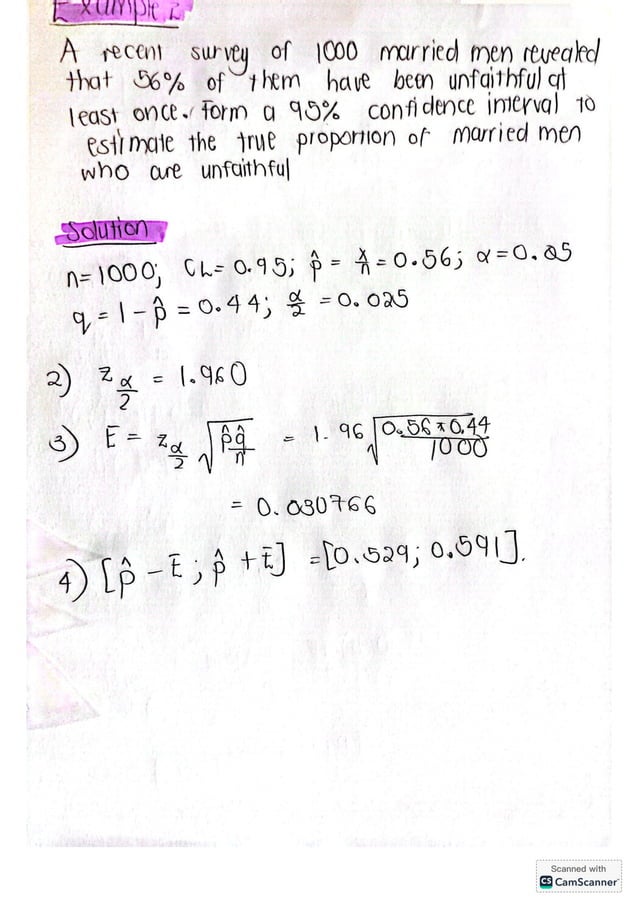 Example 2
A recent survey of 1000 married men revealed
that 56% of them have been unfaithful at
least once. Form a 95% confidence interval to
estimate the true proportion of married men
who are unfaithful
Solution
n=1000; CL= 0.95; p̂ = x/n = 0.56; α=0.05
q = 1 - p̂ = 0.44; α/2 = 0.025
2) z α/2 = 1.960
3) E = z α/2 √(p̂q̂/n) = 1.96 √(0.56 × 0.44/1000)
= 0.030766
4) [p̂ - E ; p̂ + E] = [0.529; 0.591].
Scanned with
CS CamScanner